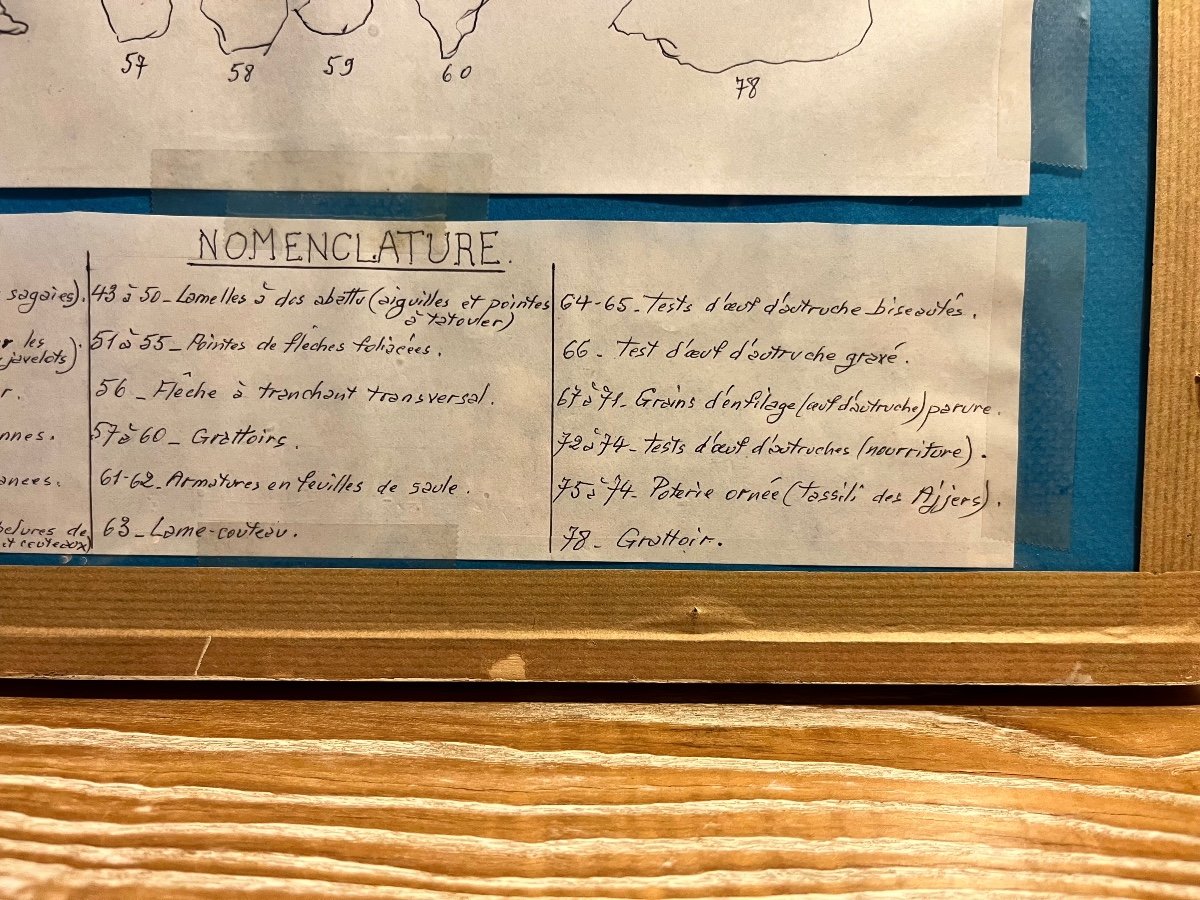 57
58
59
60
78
NOMENCLATURE.
sagaies).
r les
javelots).
r.
nnes.
ances.
belures de
et couteaux)
43 à 50_Lamelles à dos abattu (aiguilles et pointes
à tatouer)
51 à 55_Pointes de flèches foliacées.
56_Flêche à tranchant transversal.
57 à 60_Grattoirs.
61-62_Armatures en feuilles de saule.
63_Lame-couteau.
64-65_Tests d'œuf d'autruche biseautés.
66_Test d'œuf d'autruche gravé.
67 à 71_Grains d'enfilage (œuf d'autruche) parure.
72 à 74_Tests d'œuf d'autruches (nourriture).
75 à 74_Poterie ornée (Tassili des Ajjers).
78_Grattoir.